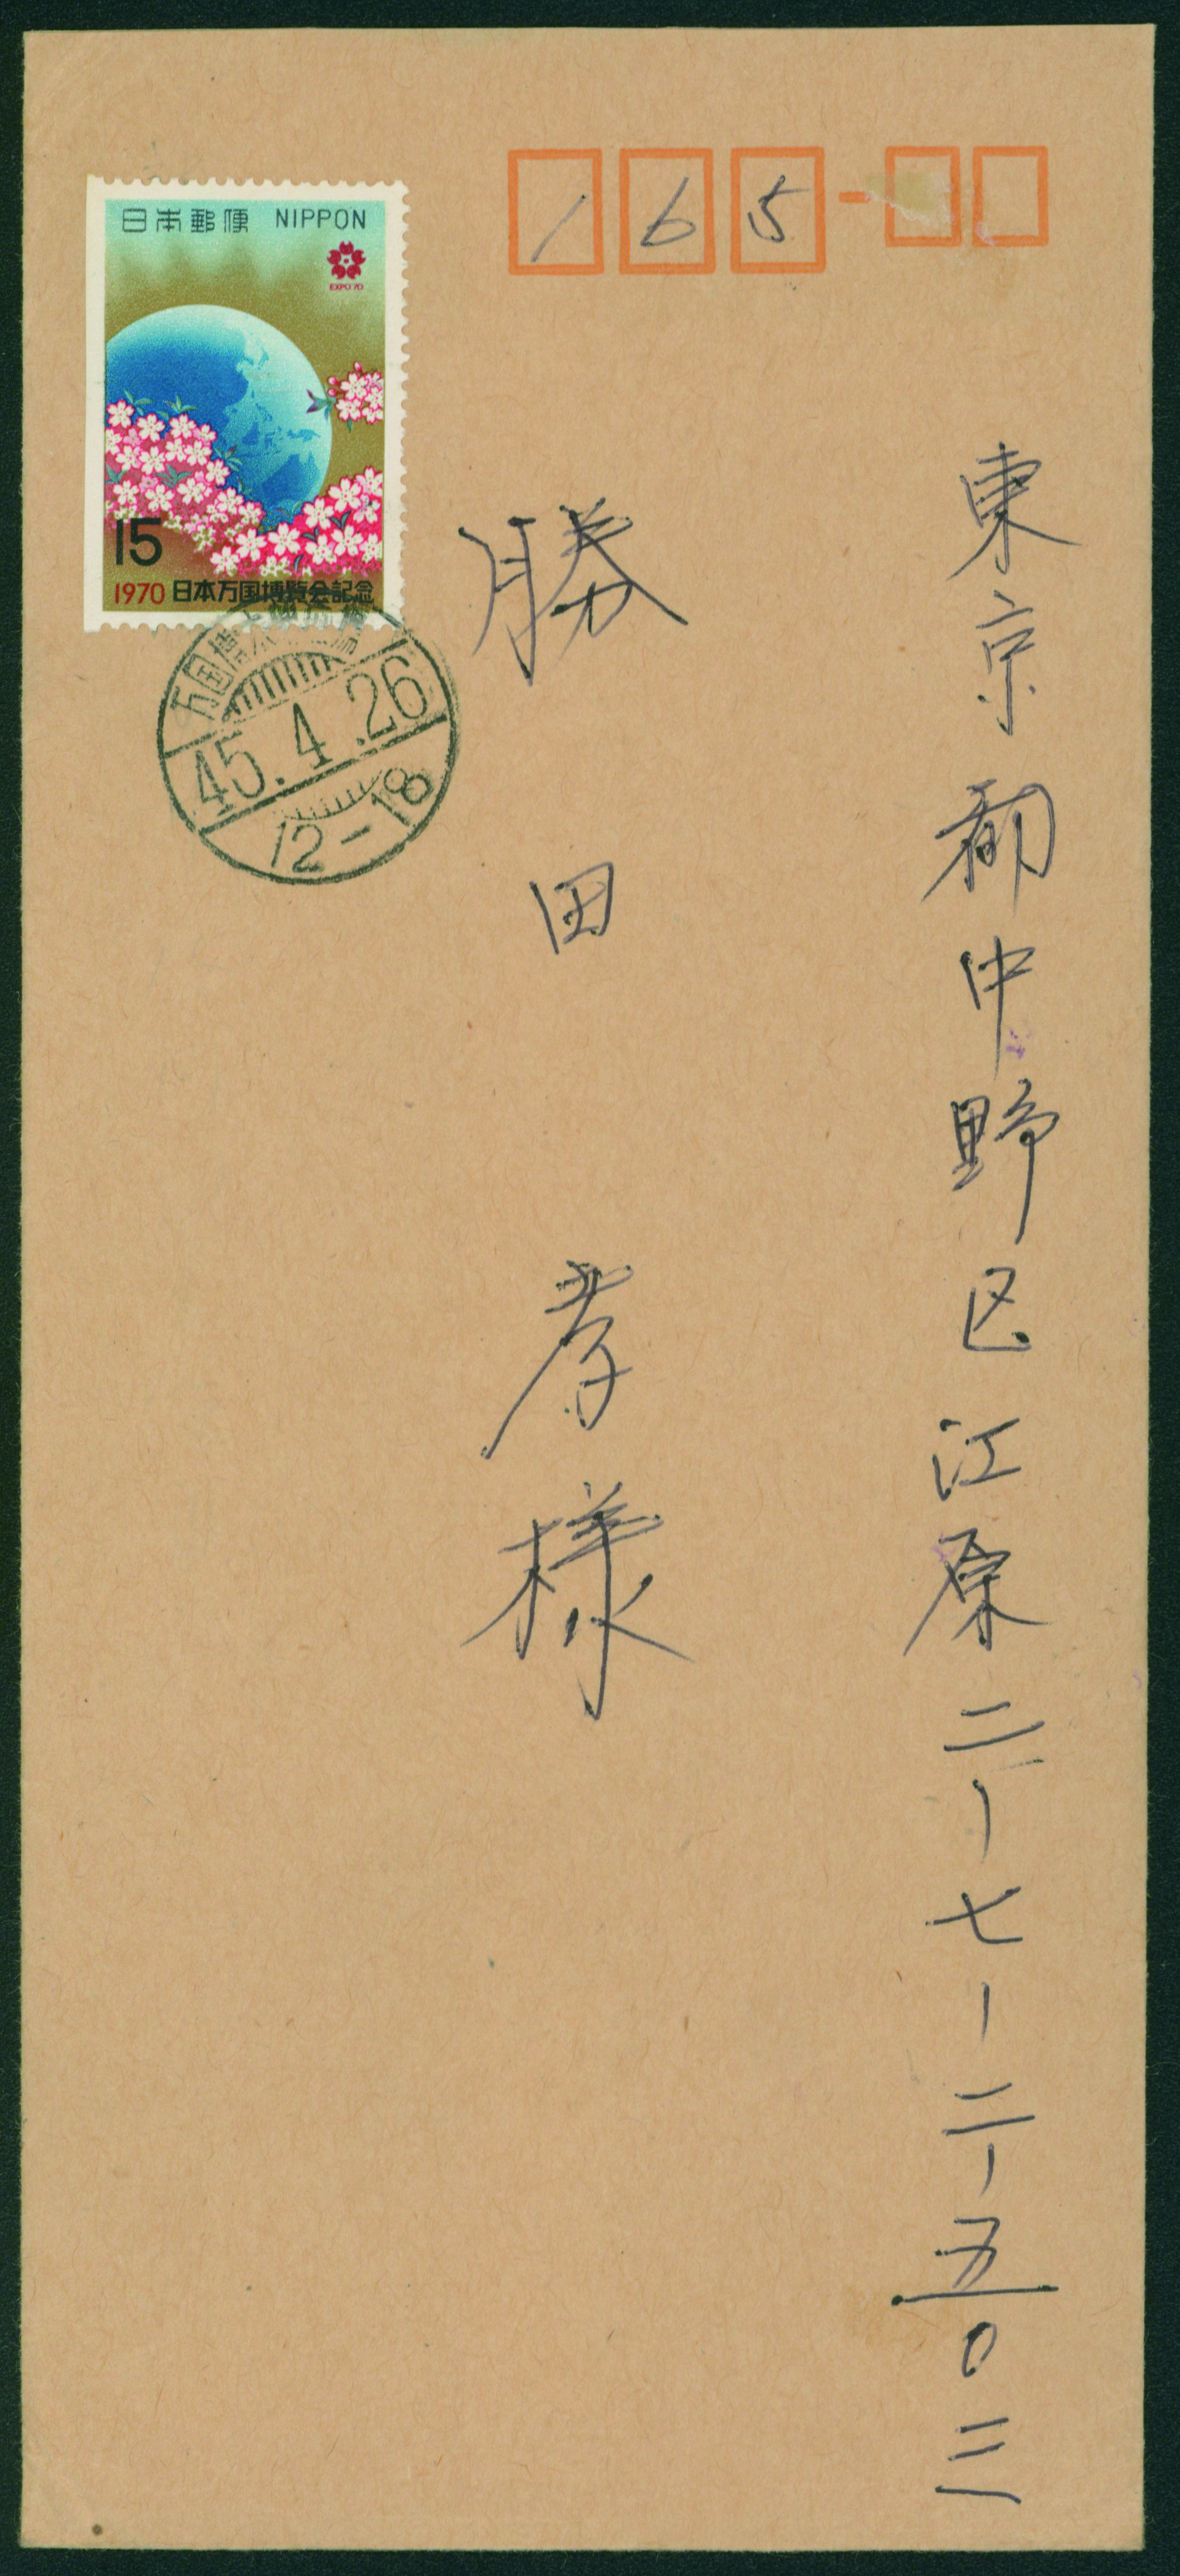 165
日本郵便 NIPPON
EXPO'70
15
1970 日本万国博覧会記念
45.4.26
12-18
東京都中野区江原二-七-二-五〇三
勝田 孝様